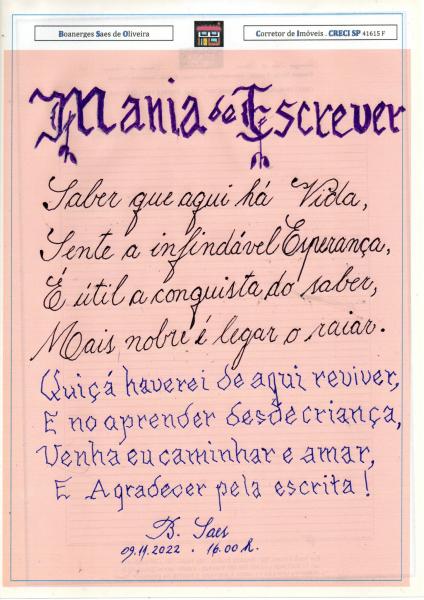 Boanerges Saes de Oliveira
Corretor de Imóveis . CRECI SP 41615 F
Mania de Escrever
Saber que aqui há Vida,
Sente a infindável Esperança,
É útil a conquista do saber,
Mais nobre é legar o raiar.
Quiçá haverei de aqui reviver,
E no aprender desde criança,
Venha eu caminhar e amar,
E Agradecer pela escrita !
B. Saes
09.11.2022 . 16.00 h.